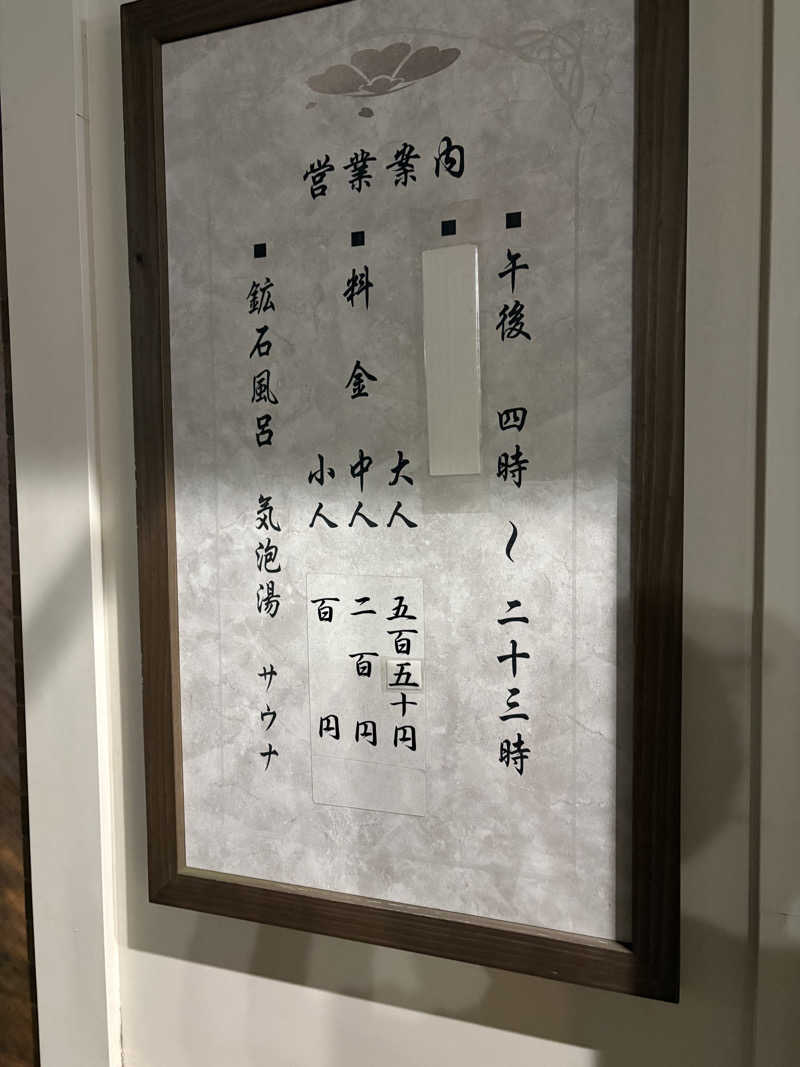 営業案内
■ 午後 四時 〜 二十三時
■
■ 料金 大人 五百五十円
中人 二百円
小人 百円
■ 鉱石風呂 気泡湯 サウナ